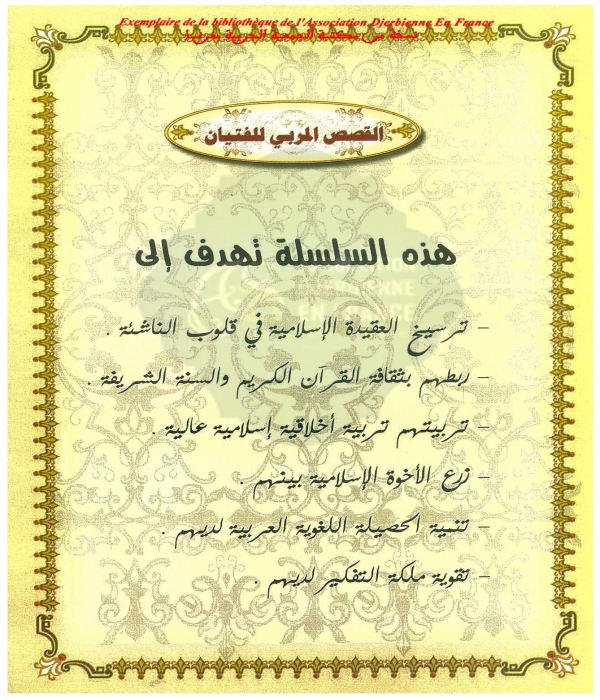 Exemplaire de la bibliothèque de l'Association Djerbienne En France
نسخة من مكتبة الجمعية الجربية بفرنسا
القصص المربي للفتيان
هذه السلسلة تهدف إلى
- ترسيخ العقيدة الإسلامية في قلوب الناشئة .
- ربطهم بثقافة القرآن الكريم والسنة الشريفة .
- تربيتهم تربية أخلاقية إسلامية عالية .
- زرع الأخوة الإسلامية بينهم .
- تنمية الحصيلة اللغوية العربية لديهم .
- تقوية ملكة التفكير لديهم .